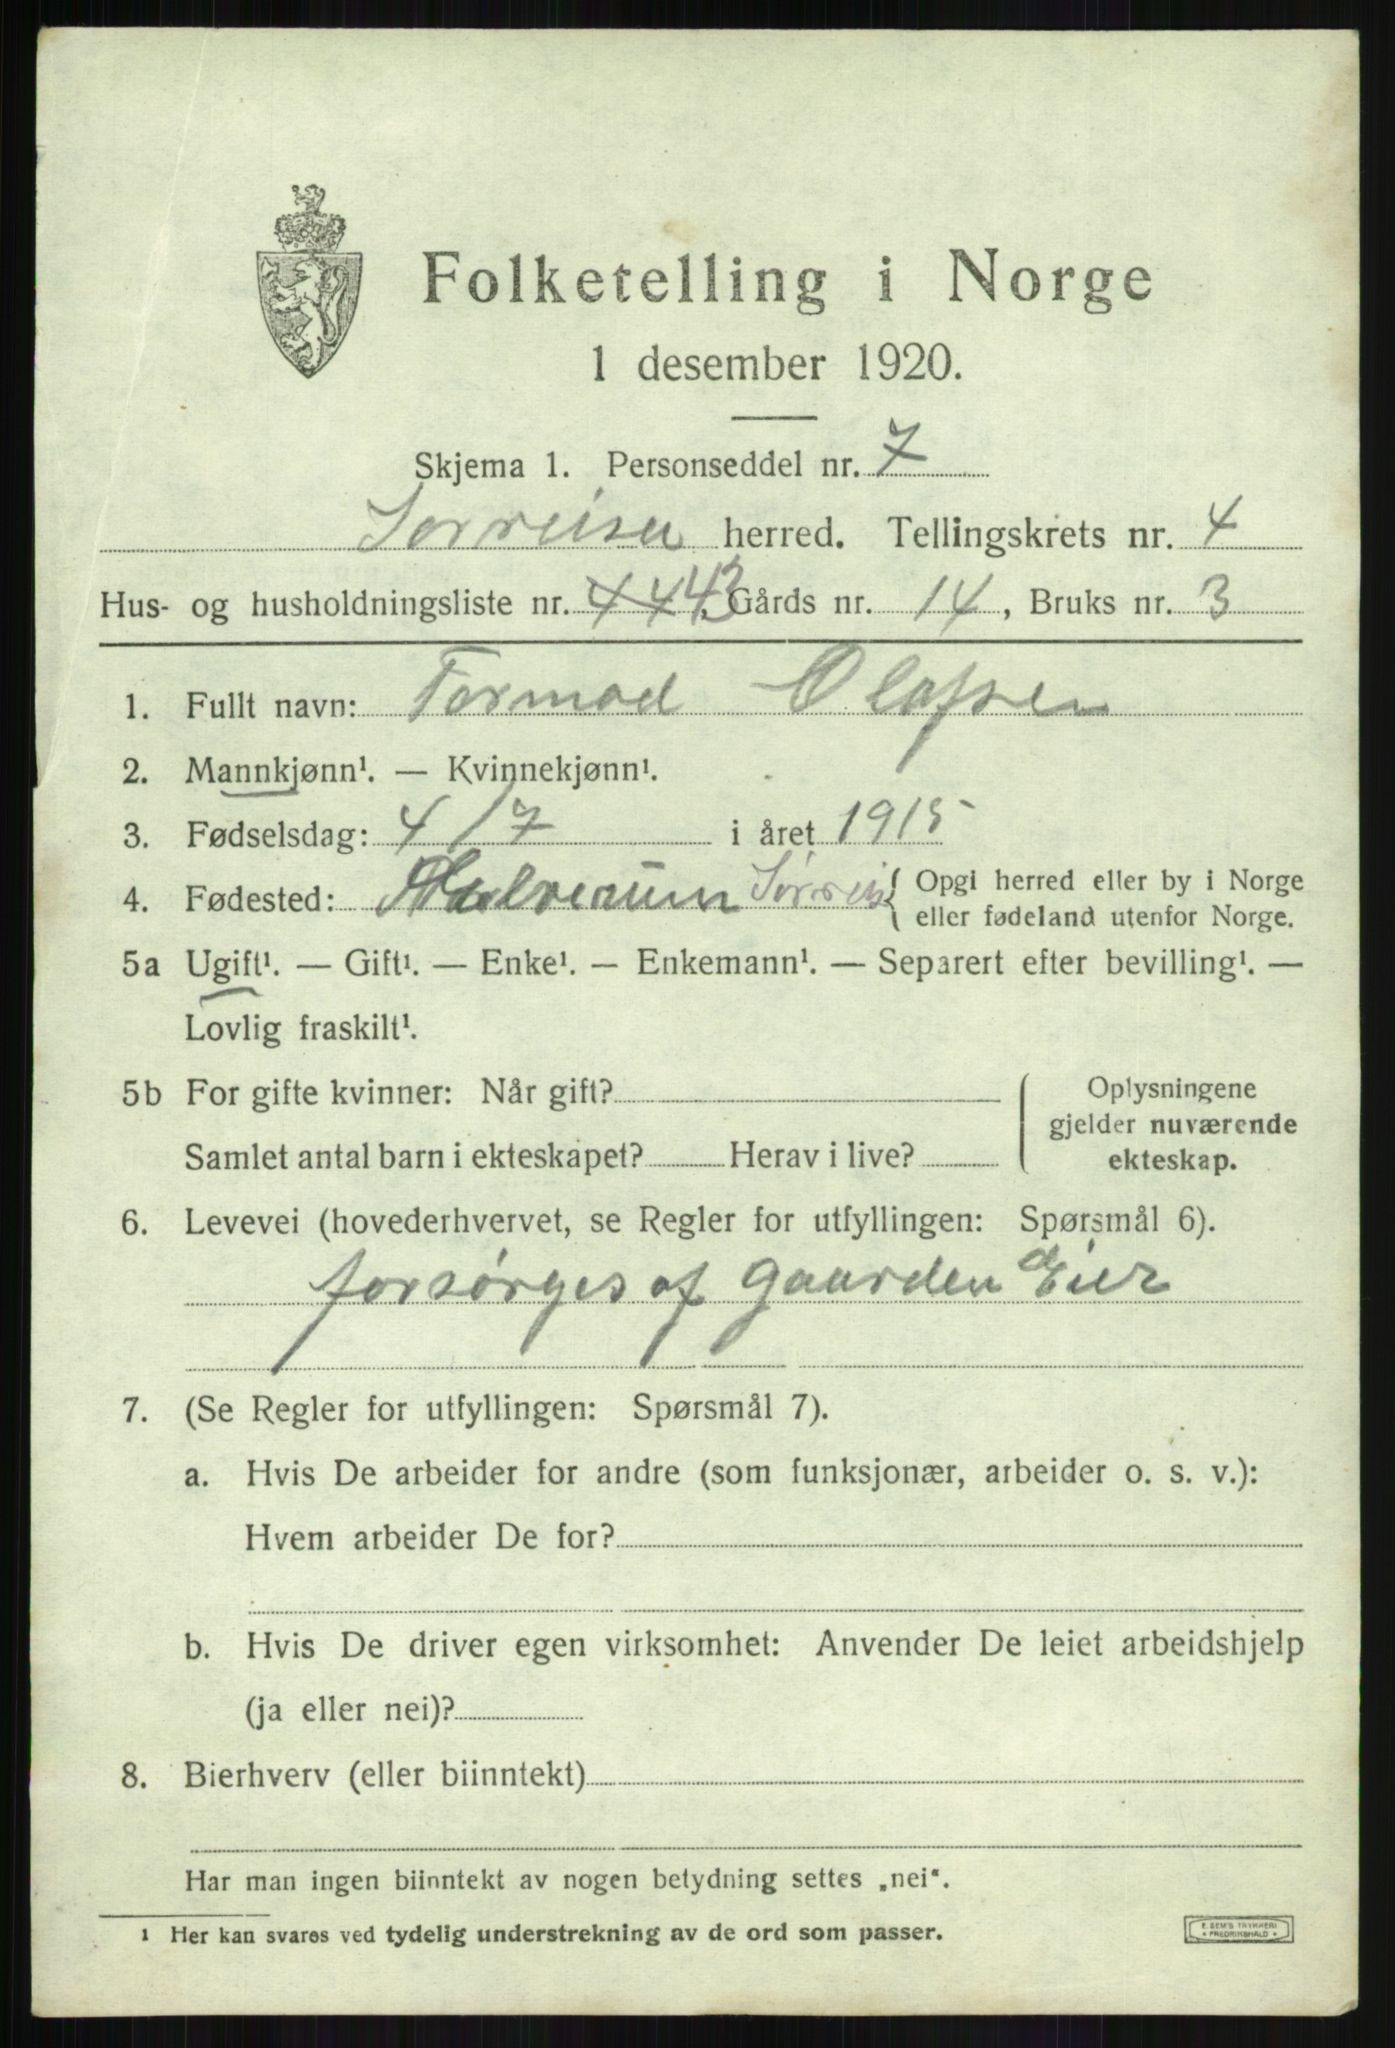 Folketelling i Norge
1 desember 1920.
Skjema 1. Personseddel nr. 7
Sørreisa herred. Tellingskrets nr. 4
Hus- og husholdningsliste nr. 44 43, Gårds nr. 14, Bruks nr. 3
1. Fullt navn: Tormod Olafsen
2. Mannkjønn¹. — Kvinnekjønn¹.
3. Fødselsdag: 4/7 i året 1915
4. Fødested: Sørreis { Opgi herred eller by i Norge
eller fødeland utenfor Norge.
5a Ugift¹. — Gift¹. — Enke¹. — Enkemann¹. — Separert efter bevilling¹. —
Lovlig fraskilt¹.
5b For gifte kvinner: Når gift?
Samlet antal barn i ekteskapet? Herav i live?
Oplysningene
gjelder nuværende
ekteskap.
6. Levevei (hovederhvervet, se Regler for utfyllingen: Spørsmål 6).
forsørges af Gaarden Eier
7. (Se Regler for utfyllingen: Spørsmål 7).
a. Hvis De arbeider for andre (som funksjonær, arbeider o. s. v.):
Hvem arbeider De for?
b. Hvis De driver egen virksomhet: Anvender De leiet arbeidshjelp
(ja eller nei)?
8. Bierhverv (eller biinntekt)
Har man ingen biinntekt av nogen betydning settes „nei“.
¹ Her kan svares ved tydelig understrekning av de ord som passer.
E. SEM'S TRYKKERI
FREDRIKSHALD